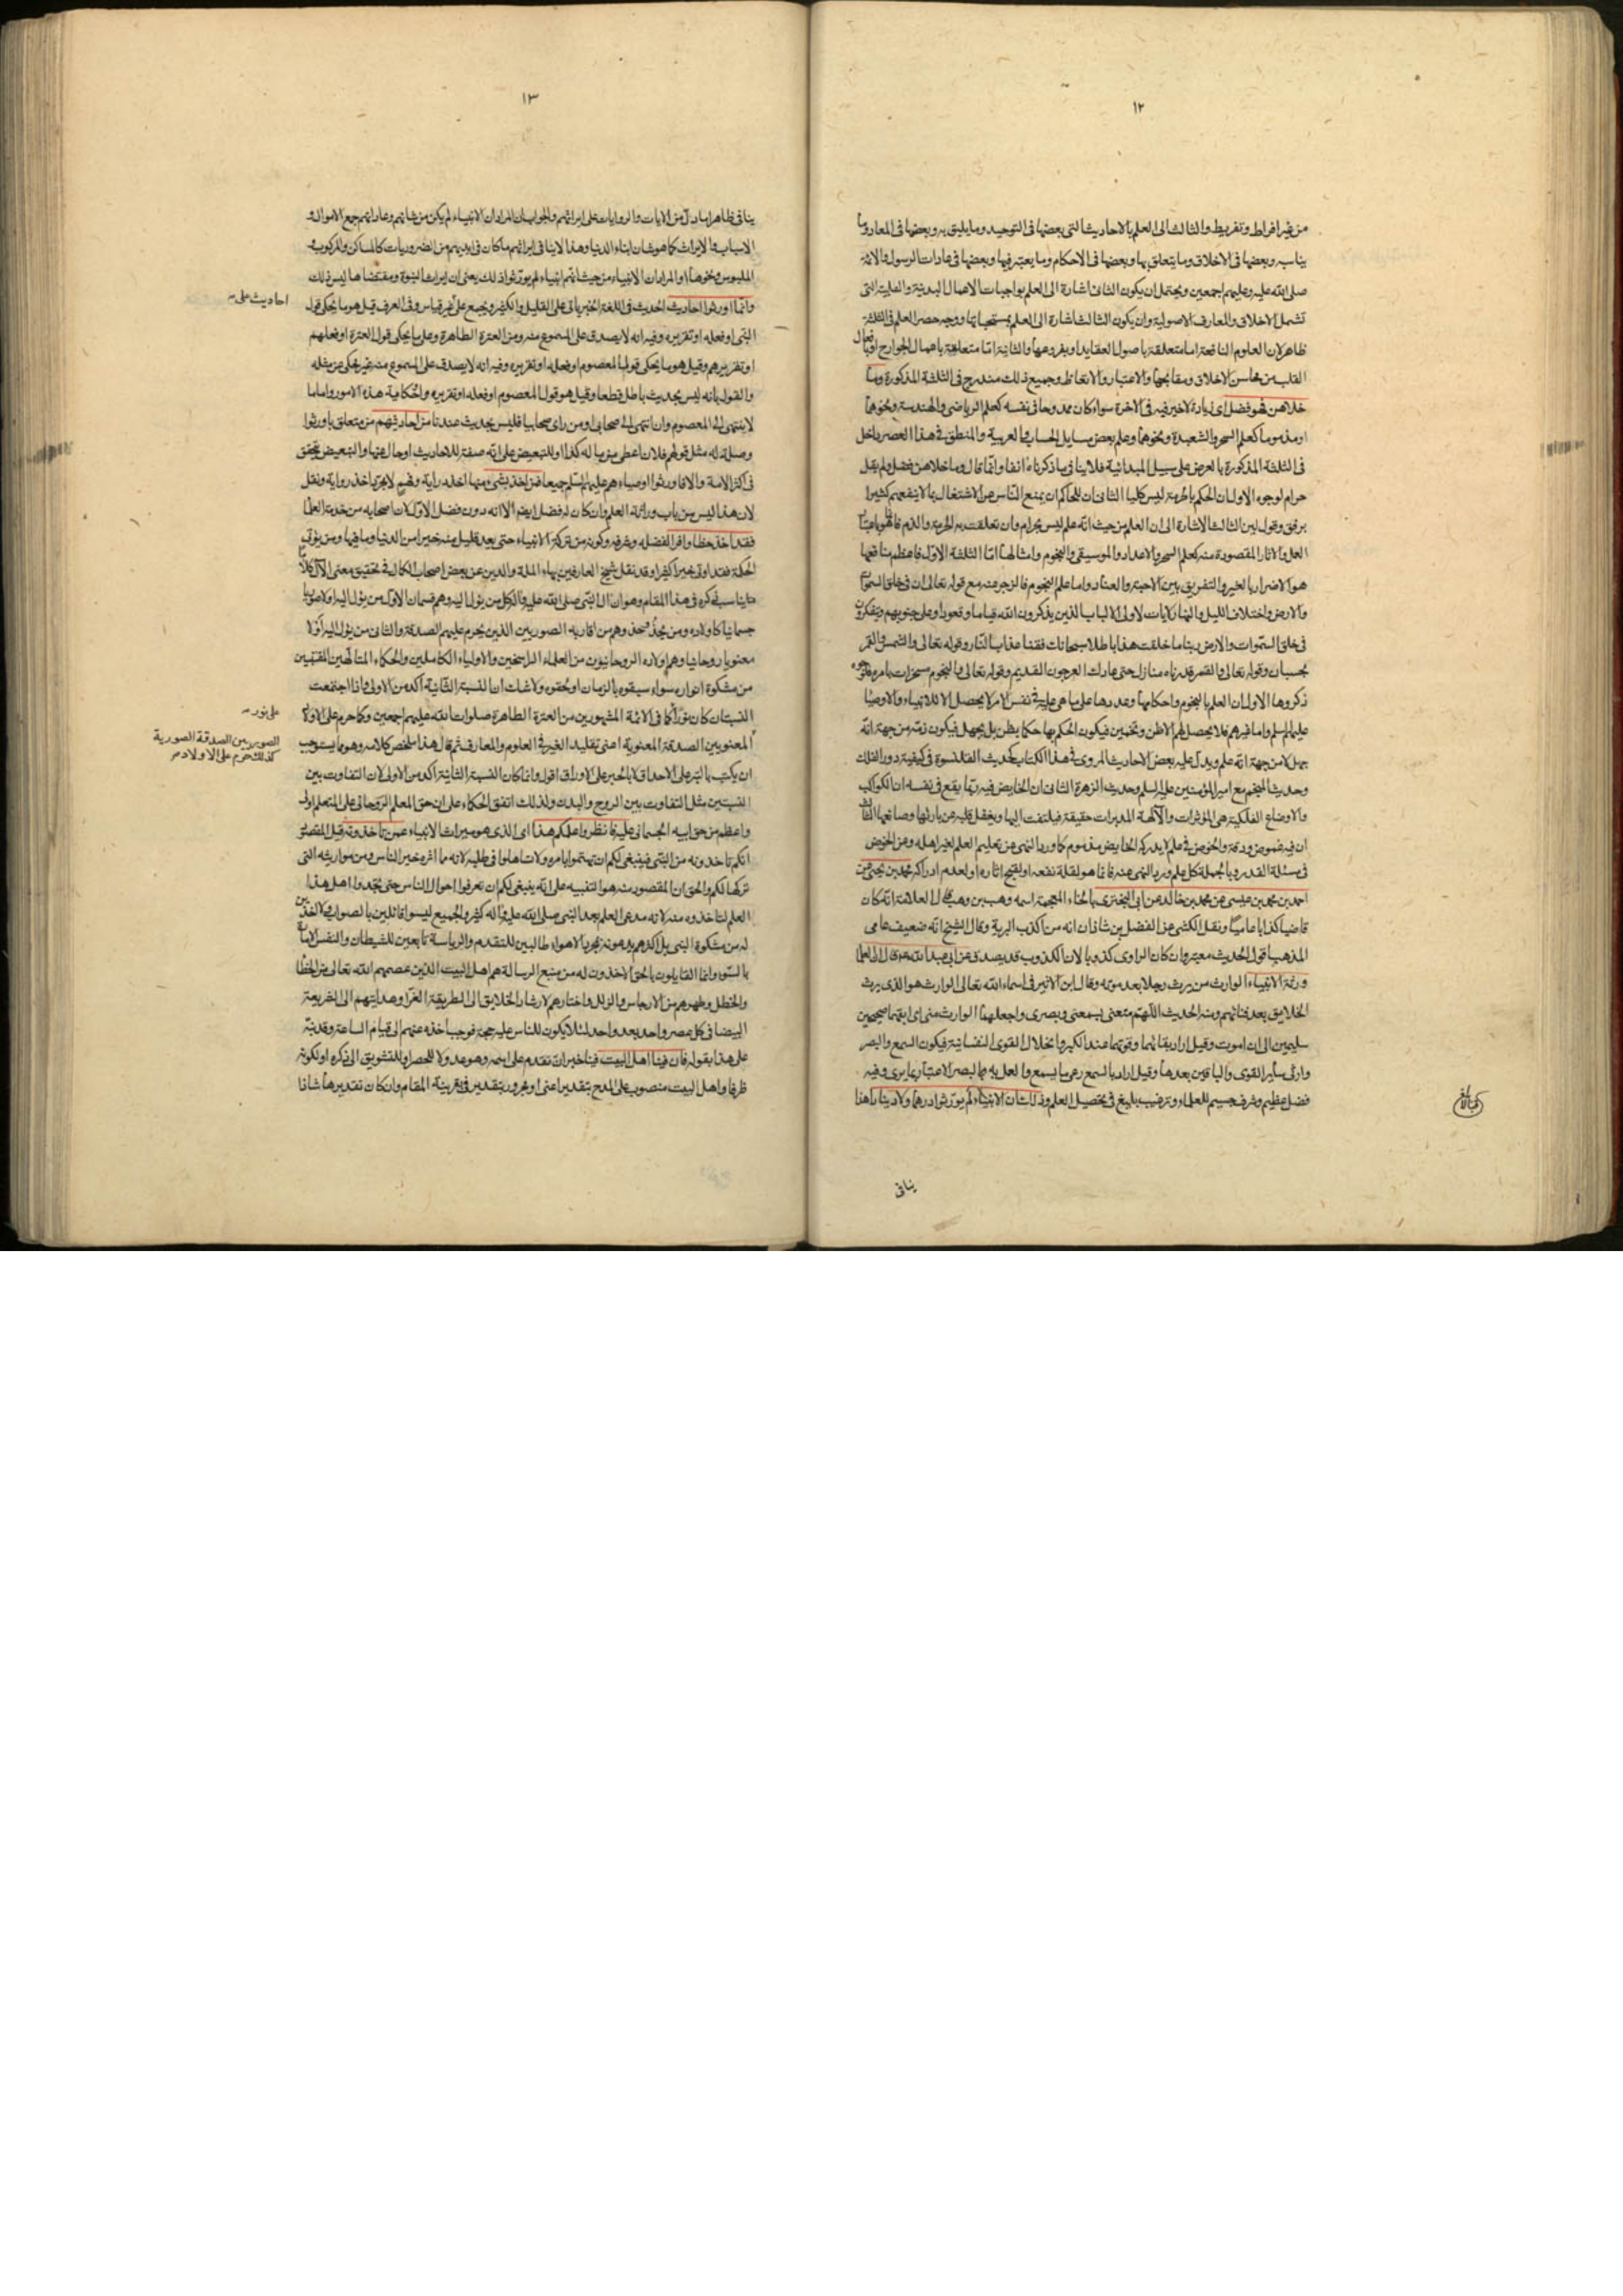 ١٢
من غير افراط وتفريط والثالث الى العلم بالاحاديث التى بعضها فى التوحيد وما يليق به وبعضها فى المعاد وما
يناسبه وبعضها فى الاخلاق وما يتعلق بها وبعضها فى الاحكام وما يعتبر فيها وبعضها فى عادات الرسول والائمة
صلى الله عليه وعليهم اجمعين ويحتمل ان يكون الثانى اشارة الى العلم بواجبات الاعمال البدنية والقلبية التى
تشمل الاخلاق والمعارف الاصولية وان يكون الثالث اشارة الى العلم بمستحباتها ووجه حصر العلم فى الثلثة
ظاهر لان العلوم النافعة اما متعلقة باصول العقايد او بفروعها والثانية اما متعلقة باعمال الجوارح او بافعال
القلب من محاسن الاخلاق ومقابحها والاعتبار والاتعاظ وجميع ذلك مندرج فى الثلثة المذكورة وما
خلاهن فهو فضل اى زيادة لا خير فيه فى الاخرة سواء كان ممدوحا فى نفسه كعلم الرياضى والهندسة ونحوها
او مذموما كعلم السحر والشعبدة ونحوها وعلم بعض مسايل الحساب والعربية والمنطق فى هذا العصر داخل
فى الثلثة المذكورة بالعرض على سبيل المبدائية فلا ينافى ما ذكرناه انفا وانما قال وما خلاهن فضل ولم يقل
حرام لوجوه الاول ان الحكم بالحرمة ليس كليا الثانى ان للحاكم ان يمنع الناس عن الاشتغال بما لا ينفعهم كثيرا
برفق وقول لين الثالث الاشارة الى ان العلم من حيث انه علم ليس بحرام وان تعلقت به الحرمة والذم فانما هو باعتبار
العمل والاثار المقصودة منه كعلم السحر والاعداد والموسيقى والنجوم وامثالها اما الثلثة الاول فاعظم منافعها
هو الاضرار بالغير والتفريق بين الاحبة والعناد واما علم النجوم فالزجر عنه مع قوله تعالى ان فى خلق السموات
والارض واختلاف الليل والنهار لايات لاولى الالباب الذين يذكرون الله قياما وقعودا وعلى جنوبهم ويتفكرون
فى خلق السموات والارض ربنا ما خلقت هذا باطلا سبحانك فقنا عذاب النار وقوله تعالى والشمس والقمر
بحسبان وقوله تعالى والقمر قدرناه منازل حتى عاد كالعرجون القديم وقوله تعالى والنجوم مسخرات بامره لوجوه
ذكروها الاول ان العلم بالنجوم واحكامها وعددها على ما هى عليه فى نفس الامر لا يحصل الا للانبياء والاوصياء
عليهم السلم واما غيرهم فلا يحصل لهم الا ظن وتخمين فيكون الحكم بها حكما بظن بل بجهل فيكون ذمه من جهة انه
جهل لا من جهة انه علم ويدل عليه بعض الاحاديث المروى فى هذا الكتاب كحديث القلنسوة فى كيفية دور الفلك
وحديث المنجم مع امير المؤمنين عليه السلم وحديث الزهرة الثانى ان الخايض فيه ربما يقع فى نفسه ان الكواكب
والاوضاع الفلكية هى المؤثرات والآلهة المدبرات حقيقة فيلتفت اليها ويغفل قلبه عن بارئها وصانعها الثالث
ان فيه غموض ودقة والخوض فى علم لا يدركه الخايض مذموم كما ورد النهى عن تعليم العلم لغير اهله وعن الخوض
فى مسئلة القدر وبالجملة كل علم ورد النهى عنه فانما هو لقلة نفعه او لقبح اثاره او لعدم ادراكه محمد بن يحيى عن
احمد بن محمد بن عيسى عن محمد بن خالد عن ابى البخترى بالخاء المعجمة اسمه وهب بن وهب قال العلامة انه كان
قاضيا كذابا عاميا ونقل الكشى عن الفضل بن شاذان انه من اكذب البرية وقال الشيخ انه ضعيف عامى
المذهب اقول الحديث معتبر وان كان الراوى كذوبا لان الكذوب قد يصدق عن ابى عبد الله ع قال ان العلماء
ورثة الانبياء الوارث من يرث رجلا بعد موته وقال ابن الاثير فى اسماء الله تعالى الوارث هو الذى يرث
الخلايق بعد فنائهم ومنه الحديث اللهم متعنى بسمعى وبصرى واجعلهما الوارث منى اى ابقهما صحيحين
سليمين الى ان اموت وقيل اراد بقائهما وقوتهما عند الكبر وانحلال القوى النفسانية فيكون السمع والبصر
وارثى ساير القوى والباقيين بعدها وقيل اراد بالسمع وعى ما يسمع والعمل به وبالبصر الاعتبار بما يرى وفيه
فضل عظيم وشرف جسيم للعلماء وترغيب بليغ فى تحصيل العلم وذلك ان الانبياء لم يورثوا درهما ولا دينارا هذا
ينافى
١٣
ينافى ظاهرا ما دل من الايات والروايات على ايراثهم والجواب ان المراد ان الانبياء لم يكن من شانهم وعاداتهم جمع الاموال و
الاسباب والايراث كما هو شان ابناء الدنيا وهذا لا ينافى ايراثهم ما كان فى ايديهم من الضروريات كالمساكن والمركوب و
الملبوس ونحوها او المراد ان الانبياء من حيث انهم انبياء لم يورثوا ذلك يعنى ان ايراث النبوة ومقتضاها ليس ذلك
وانما اورثوا احاديث الحديث فى اللغة الخبر ياتى على القليل والكثير ويجمع على غير قياس وفى العرف قيل هو ما يحكى قول
احاديث على
النبى او فعله او تقريره وفيه انه لا يصدق على المسموع منه ومن العترة الطاهرة وعلى ما يحكى قول العترة او فعلهم
او تقريرهم وقيل هو ما يحكى قول المعصوم او فعله او تقريره وفيه انه لا يصدق على المسموع منه غير محكى عن مثله
والقول بانه ليس بحديث باطل قطعا وقيل هو قول المعصوم او فعله او تقريره والحكاية هذه الامور واما ما
لا ينتهى الى المعصوم وان انتهى الى صحابى او من راى صحابيا فليس بحديث عندنا من احاديثهم من متعلق باورثوا
وصلة له مثل قولهم فلان اعطى من ماله كذا او للتبعيض على انه صفة للاحاديث او حال عنها والتبعيض يتحقق
فى اكثر الامة والافاورثوا اوصياءهم عليهم السلم جميعا فمن اخذ بشىء منها اخذ دراية وفهم لا مجرد اخذ رواية ونقل
لان هذا ليس من باب وراثة العلم وان كان له فضل ايضا الا انه دون فضل الاول لان اصحابه من خدمة العلماء
فقد اخذ حظا وافرا لفضله وشرفه وكونه من تركة الانبياء حتى يعد قليل منه خيرا من الدنيا وما فيها ومن يؤتى
الحكمة فقد اوتى خيرا كثيرا وقد نقل شيخ العارفين بهاء الملة والدين عن بعض اصحاب الكمال فى تحقيق معنى الآل كلاما
يناسب ذكره فى هذا المقام وهو ان آل النبى صلى الله عليه وآله كل من يؤل اليه وهم قسمان الاول من يؤل اليه اولا صوريا
جسمانيا كاولاده ومن يحذو حذوهم من اقاربه الصوريين الذين يحرم عليهم الصدقة والثانى من يؤل اليه اولا
معنويا روحانيا وهم اولاده الروحانيون من العلماء الراسخين والاولياء الكاملين والحكماء المتالهين المقتبسين
من مشكوة انواره سواء سبقوه بالزمان او لحقوه ولا شك ان النسبة الثانية آكد من الاولى واذا اجتمعت
النسبتان كان نورا كما فى الائمة المشهورين من العترة الطاهرة صلوات الله عليهم اجمعين وكما حرم على الاولاد
على نور
المعنويين الصدقة المعنوية اعنى تقليد الغير فى العلوم والمعارف ثم قال هذا ملخص كلامه وهو مما يستوجب
الصوريين الصدقة الصورية
كذلك حرم على الاولاد
ان يكتب بالتبر على الاحداق لا بالحبر على الاوراق اقول وانما كان النسبة الثانية آكد من الاولى لان التفاوت بين
النسبتين مثل التفاوت بين الروح والبدن ولذلك اتفق الحكماء على ان حق المعلم الروحانى على المتعلم اولى
واعظم من حق ابيه الجسمانى عليه فانظروا علمكم هذا اى الذى هو ميراث الانبياء عمن تاخذونه قيل المقصود
انكم تاخذونه من النبى فينبغى لكم ان تهتموا بامره ولا تساهلوا فى طلبه لانه مما اثره خير الناس ومن مواريثه التى
تركها لكم والحق ان المقصود منه هو التنبيه على انه ينبغى لكم ان تعرفوا احوال الناس حتى تجدوا اهل هذا
العلم لتاخذوه منه لانه مدعى العلم بعد النبى صلى الله عليه وآله كثير والجميع ليسوا قائلين بالصواب ولا اخذين
له من مشكوة النبى بل اكثرهم يدعونه بمجرد الاهواء طالبين للتقدم والرياسة تابعين للشيطان والنفس الامارة
بالسوء وانما القايلون بالحق الاخذون له من منبع الرسالة هم اهل البيت الذين عصمهم الله تعالى من الخطا
والخطل وطهرهم من الارجاس والزلل واختارهم لارشاد الخلايق الى الطريقة الغرا وهدايتهم الى الشريعة
البيضا فى كل عصر واحد بعد واحد لئلا يكون للناس عليه حجة فوجب اخذه عنهم الى قيام الساعة وقد نبه
على هذا بقوله فان فينا اهل البيت فينا خبر ان تقدم على اسمه وهو عدولا للحصر او للتشويق الى ذكره او لكونه
ظرفا واهل البيت منصوب على المدح بتقدير اعنى او مجرور بتقدير فى بقرينة المقام وان كان تقديرها شاذا